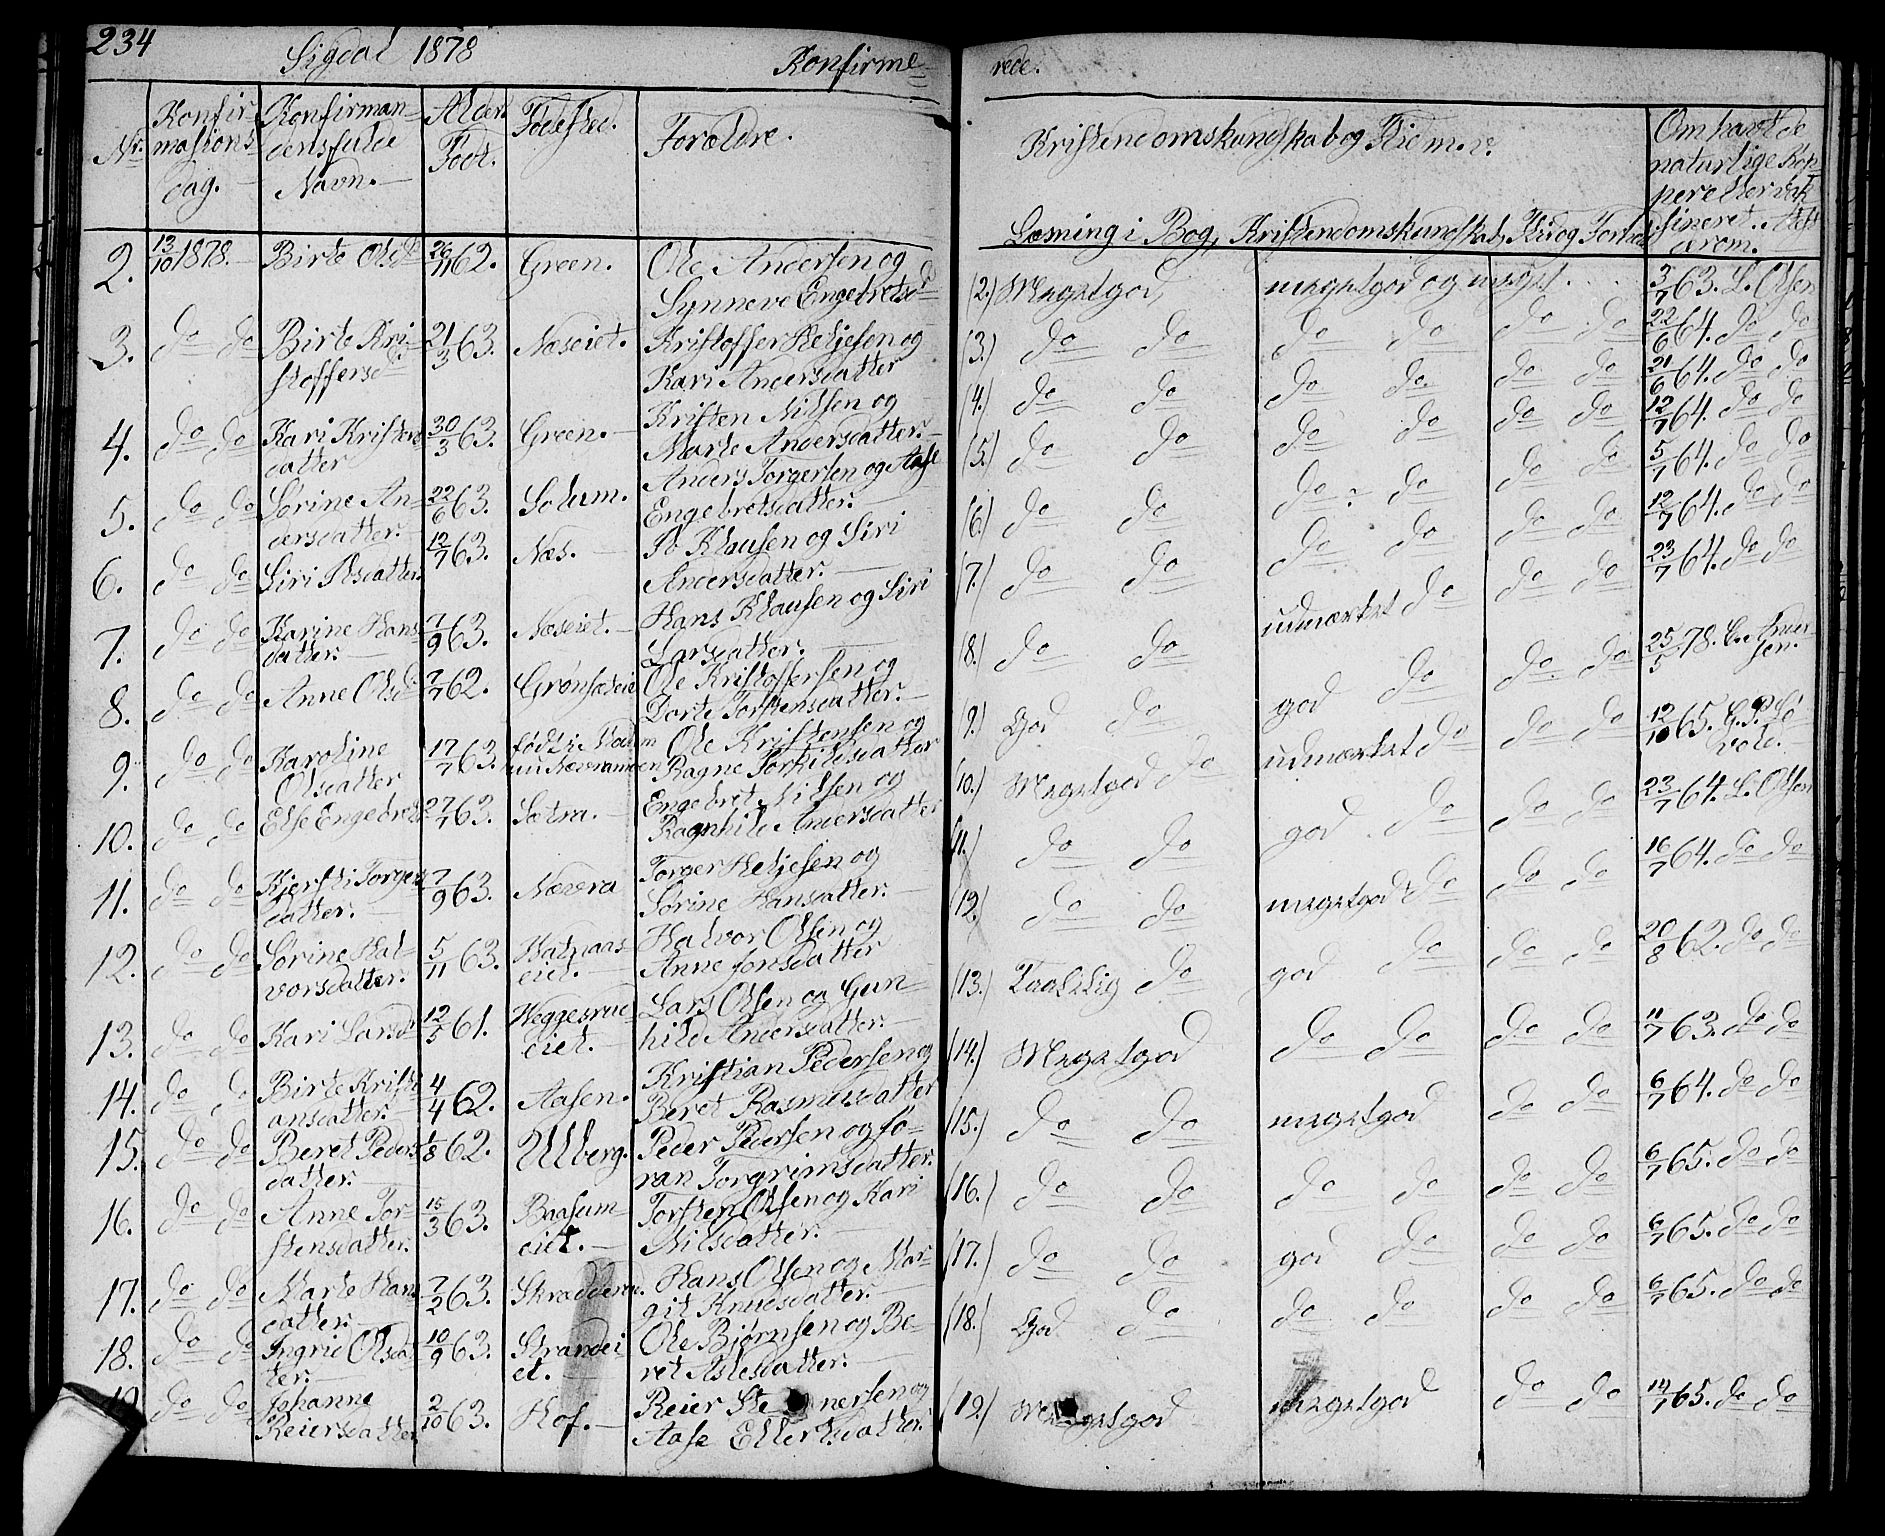 234
Sigdal 1878 Konfirme-
rede.
Nr. Konfir- Konfirman- Alder. Fødested. Forældre.
mations- dens fulde Født.
dag. Navn.
Kristendomskundskab og Flid m. v. Om havt de
naturlige Kop-
per eller vak-
Læsning i Bog, Kristendomskundskab, Flid og Forhold sineret. Attest
derom.
2. 13/10 1878. Birte Olsd. 26/11 62. Green. Ole Andersen og
Synneve Engebretsd.
3. do do Birte Kri- 21/3 63. Næseiet. Kristoffer Heljesen og
stoffersd. Kari Andersdatter
4. do do Kari Kristens- 30/3 63. Green. Kristen Nilsen og
datter Marte Andersdatter.
5. do do Sørine An- 22/6 63. Solum. Anders Torgersen og Aase
dersdatter. Engebretsdatter.
6. do do Siri Psdatter. 12/7 63. Næs. P Klausen og Siri
Andersdatter.
7. do do Karine Hans- 7/9 63. Næseiet. Hans Klausen og Siri
datter. Larsdatter.
8. do do Anne Olsd. 7/7 62. Ole Kristoffersen og
Dorte Torstensdatter.
9. do do Karoline 17/7 63. født i Modum Ole Kristensen og
Olsdatter nu Ragne Torkildsdatter
10. do do Else Engebrets 27/7 63. Sætra. Engebret Nilsen og
Ragnhild Andersdatter
11. do do Kjersti Torgers 7/9 63. Nævra Torger Heljesen og
datter. Sørine Hansdatter.
12. do do Sørine Hal- 5/11 63. Halvor Olsen og
vorsdatter. eiet. Anne Jonsdatter
13. do do Kari Larsd. 12/5 61. Heggesrud- Lars Olsen og Gun-
eiet. hild Andersdatter.
14. do do Birte Kristi 4/4 62. Aasen. Kristian Pedersen og
ansdatter. Beret Rasmusdatter
15. do do Beret Peders 1/8 62. Ulberg. Peder Pedersen og Jø-
datter. ran Torgrimsdatter.
16. do do Anne Tor- 15/3 63. Baasum- Torsten Olsen og Kari
stensdatter. eiet. Nilsdatter.
17. do do Marte Hans 7/2 63. Hans Olsen og Mar-
datter. git Knudsdatter.
18. do do Ingrid Olsdat 10/9 63. Strandei Ole Bjørnsen og Be-
ter. et. ret Aslesdatter.
do do Johanne 2/10 63. Hof. Reier Ste nersen og
Reiersdatter Aase Ellertsdatter.
(2.) Megetgod, megetgod og 3/7 63. L. Olsen
(3.) do do do do do do 22/6 64. do do
(4.) do do do do do do 21/6 64. do do
(5.) do do do do do do 12/7 64. do do
(6.) do do do do do do 5/7 64. do do
(7.) do do do do do do 12/7 64. do do
(8.) do do udmærket do do do 23/7 64. do do
(9.) God do god do do do 25/5 78.
sen.
(10.) Megetgod do udmærket do do do 12/10 65.
(11.) do do god do do do 23/7 64. L. Olsen
(12.) do do megetgod do do do 16/7 64. do do
(13.) Taalelig do god do do do 20/8 62. do do
(14.) Megetgod do do do do 11/7 63. do do
(15.) do do megetgod do do 6/7 64. do do
(16.) do do do do do do 6/7 65. do do
(17.) do do god do do do 6/7 65. do do
(18.) God do do do do do 6/7 65. do do
(19.) Megetgod megetgod do do 14/7 65. do do